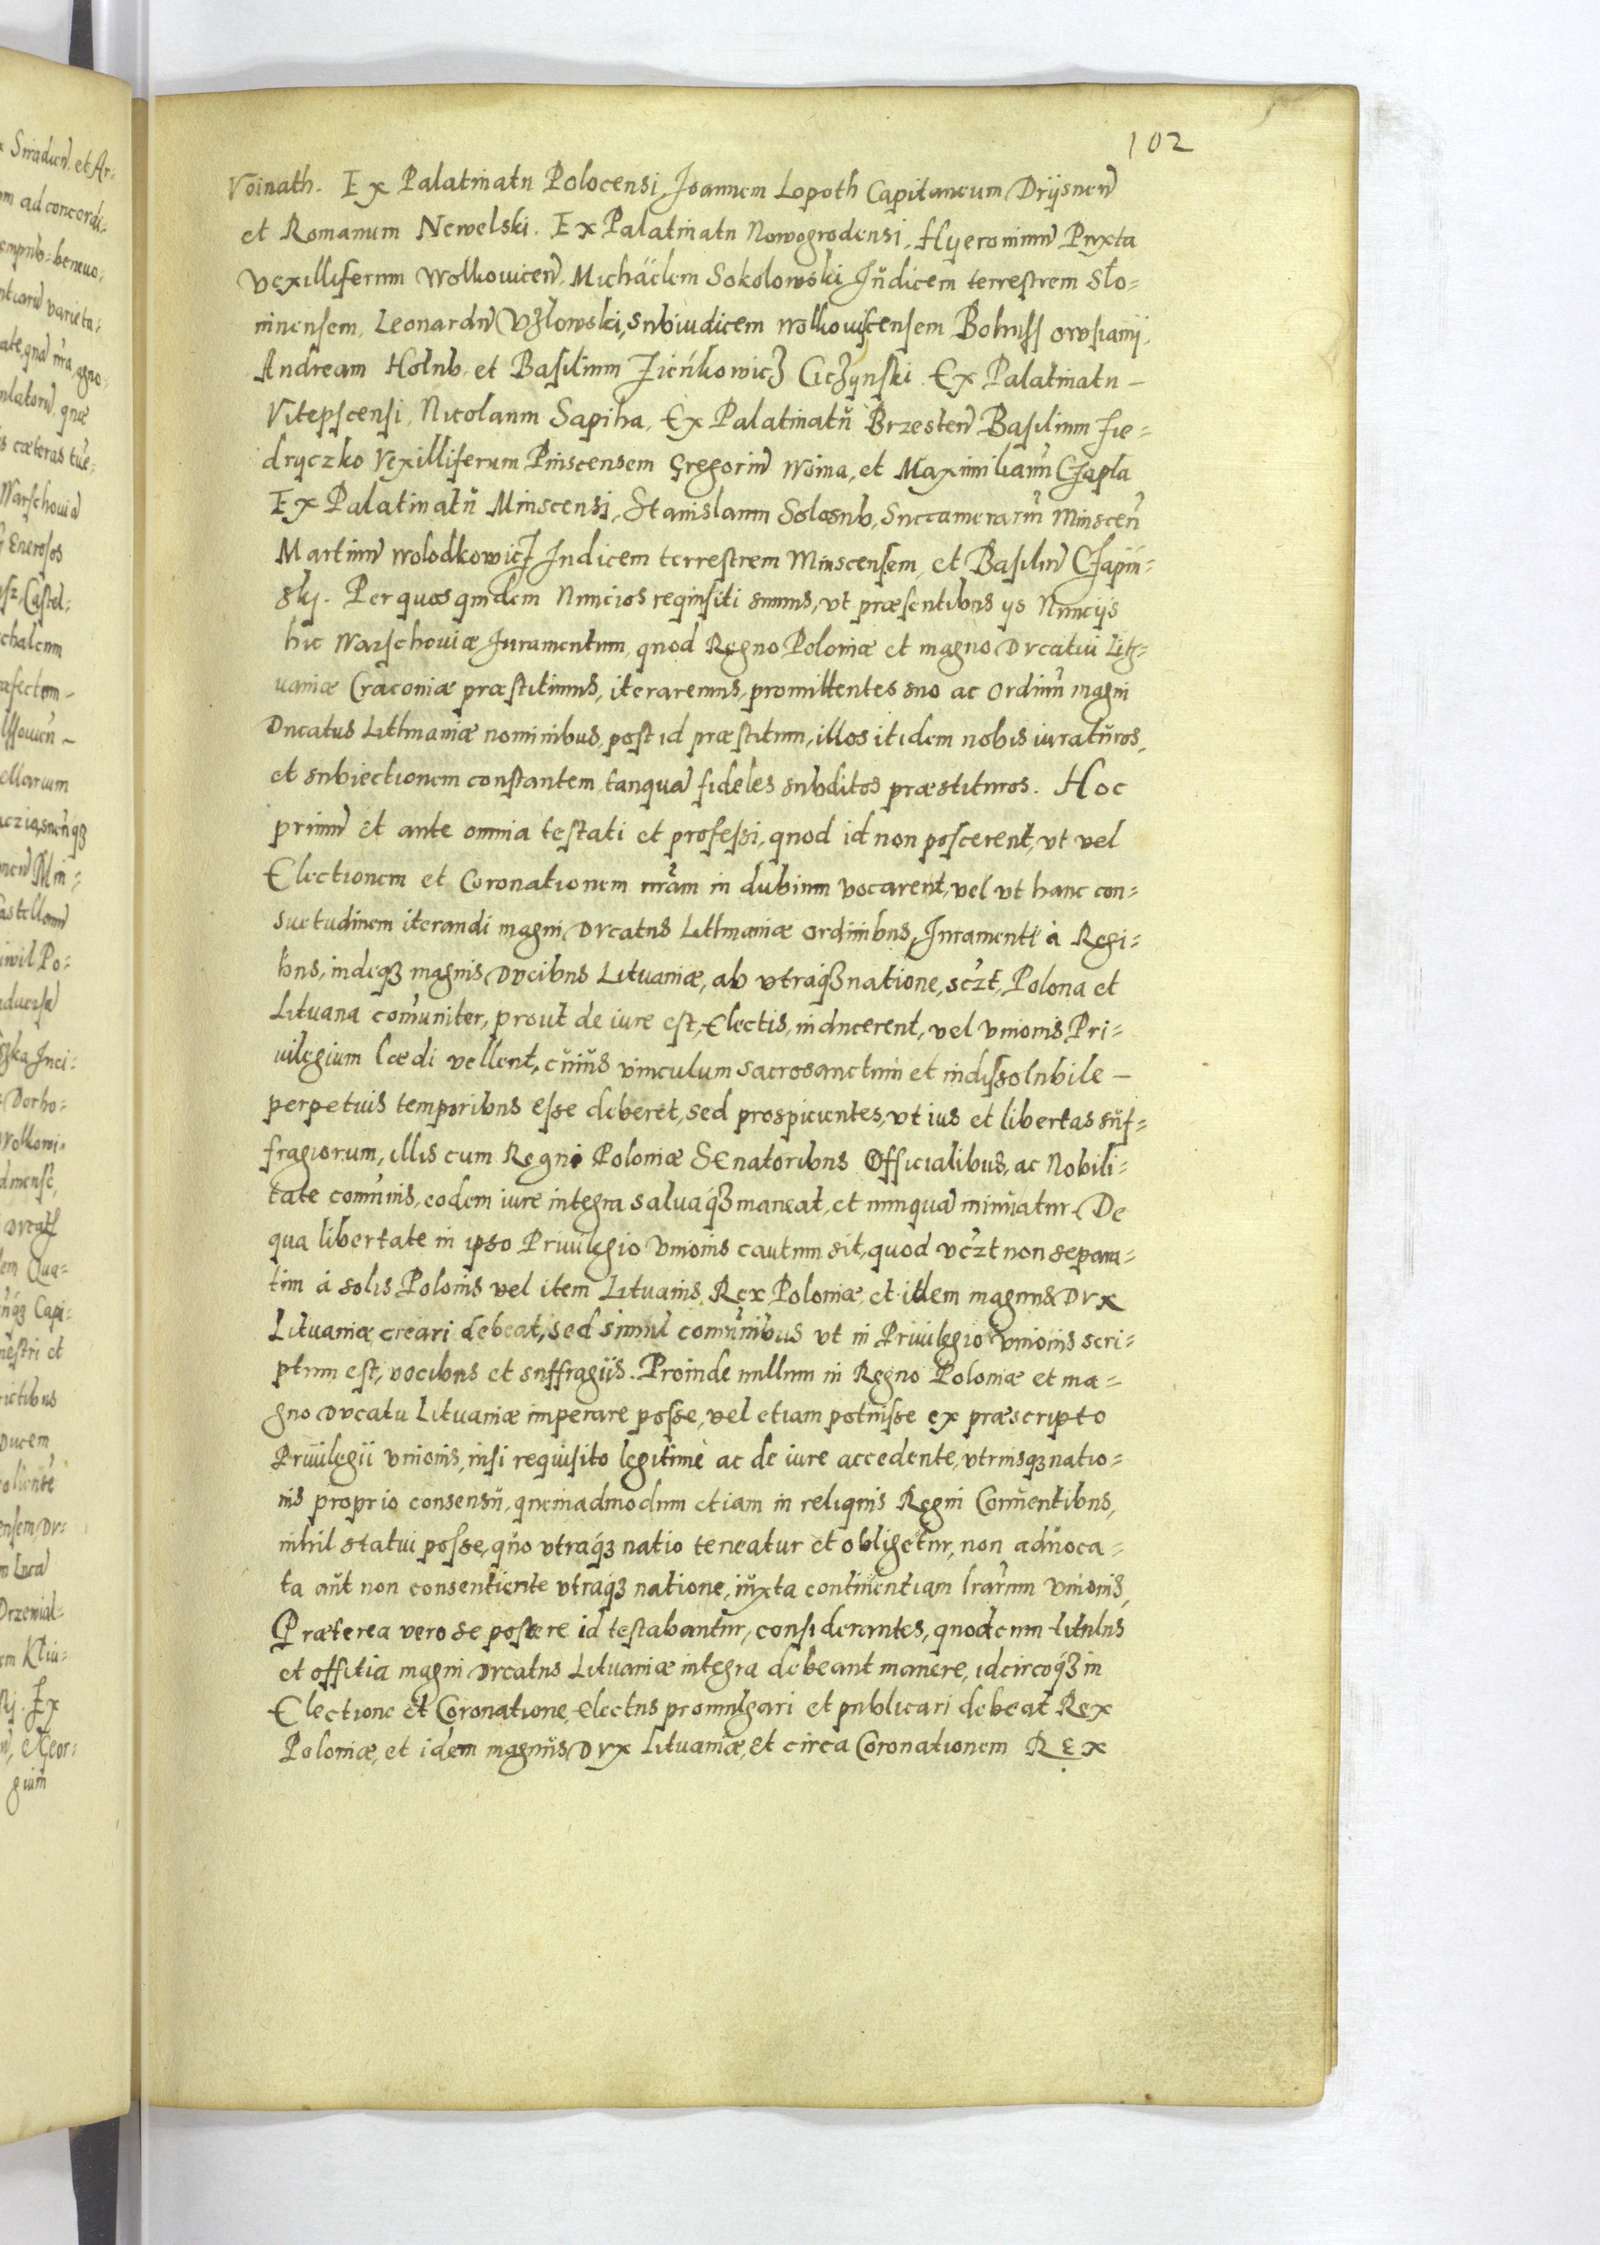 102
Voinath. Ex Palatinatu Polocensi, Joannem Lopoth Capitaneum Drijsnen̄
et Romanum Newelski. Ex Palatinatu Nowogrodensi, Hyeronimū Puxta
Vexilliferum Wolkouicen̄, Michäelem Sokolowski Jŭdicem terrestrem Slo-
ninensem, Leonardū Uzlowski, subiudicem wolkouiscensem Bohuss owsianij,
Andream Holub, et Basilium Zieńkowicz Ciczynski. Ex Palatinatu –
Vitepscensi, Nicolaum Sapiha, Ex Palatinatŭ Brzesten̄ Basilium Fie-
dryczko Vexilliferum Pinscensem Gregoriū Woina, et Maximilianū Czapla
Ex Palatinatŭ Minscensi, Stanislaum Solosub, Succamerariū Minscen̄
Martinū wolodkowicz Judicem terrestrem Minscensem, et Basiliū Czapin-
skij. Per quos quidem Nuncios requisiti sumus, vt præsentibus ijs Nuncijs
hic Warschouiæ Juramentum, quod Regno Poloniæ et magno Ducatui Lith-
uaniæ Cracouiæ præstitimus, iteraremus, promittentes suo ac Ordinū magni
Ducatus Lithuaniæ nominibus, post id præstitum, illos itidem nobis iuratŭros,
et subiectionem constantem tanquā fideles subditos præstituros. Hoc
primū et ante omnia testati et professi, quod id non poscerent, vt vel
Electionem et Coronationem nrām in dubium vocarent, vel vt hanc con-
suetudinem iterandi magni Ducatus Lithuaniæ ordinibus, Juramenti à Regi-
bus, indeqz magnis Ducibus Lituaniæ, ab vtraqz natione, sczt, Polona et
Lituana comūniter, prout de iure est, Electis, inducerent, vel vnionis Pri-
uilegium lædi vellent, cŭiŭs vinculum sacrosanctum et indissolubile –
perpetuis temporibus esse deberet, sed prospicientes, vt ius et libertas sŭf-
fragiorum, illis cum Regni Poloniæ Senatoribus Officialibus, ac Nobili-
tate comūnis, eodem iure integra saluaqz maneat, et nunquā minuatur. De
qua libertate in ipso Priuilegio Vnionis cautum sit, quod vczt non separa-
tim à solis Polonis vel item Lituanis Rex Poloniæ, et idem magnus Dux
Lituaniæ creari debeat, sed simul comūnibus vt in Priuilegio vnionis scri-
ptum est, vocibus et suffragijs. Proinde nullum in Regno Poloniæ et ma-
gno Ducatu Lituaniæ imperare posse, vel etiam potuisse ex præscripto
Priuilegii vnionis, nisi requisito legitimè ac de iure accedente, vtriusqz natio-
nis proprio consensŭ, quemadmodum etiam in reliquis Regni Conuentibus,
nihil statui posse, quo vtraqz natio teneatur et obligetur, non aduoca-
ta aŭt non consentiente vtraqz natione, iŭxta continentiam lrarum vnionis,
Præterea vero se poscere id testabantur, considerantes, quod cum titulus
et offitia magni Ducatus Lituaniæ integra debeant manere, idcircoqz in
Electione et Coronatione, electus promulgari et publicari debeat Rex
Poloniæ, et idem magnus Dux Lituaniæ, et circa Coronationem Rex